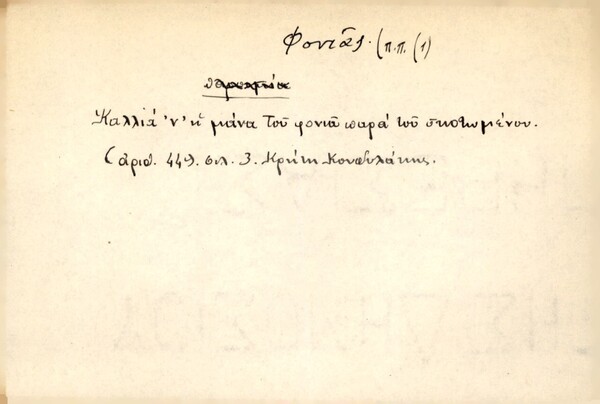 Φονιᾶς. (π.π. (1)
Καλλιά 'ν' ἡ μάνα τοῦ φονιᾶ παρά τοῦ σκοτωμένου.
(ἀριθ. 449. σελ. 3. Κρήτη Κονδυλάκης.